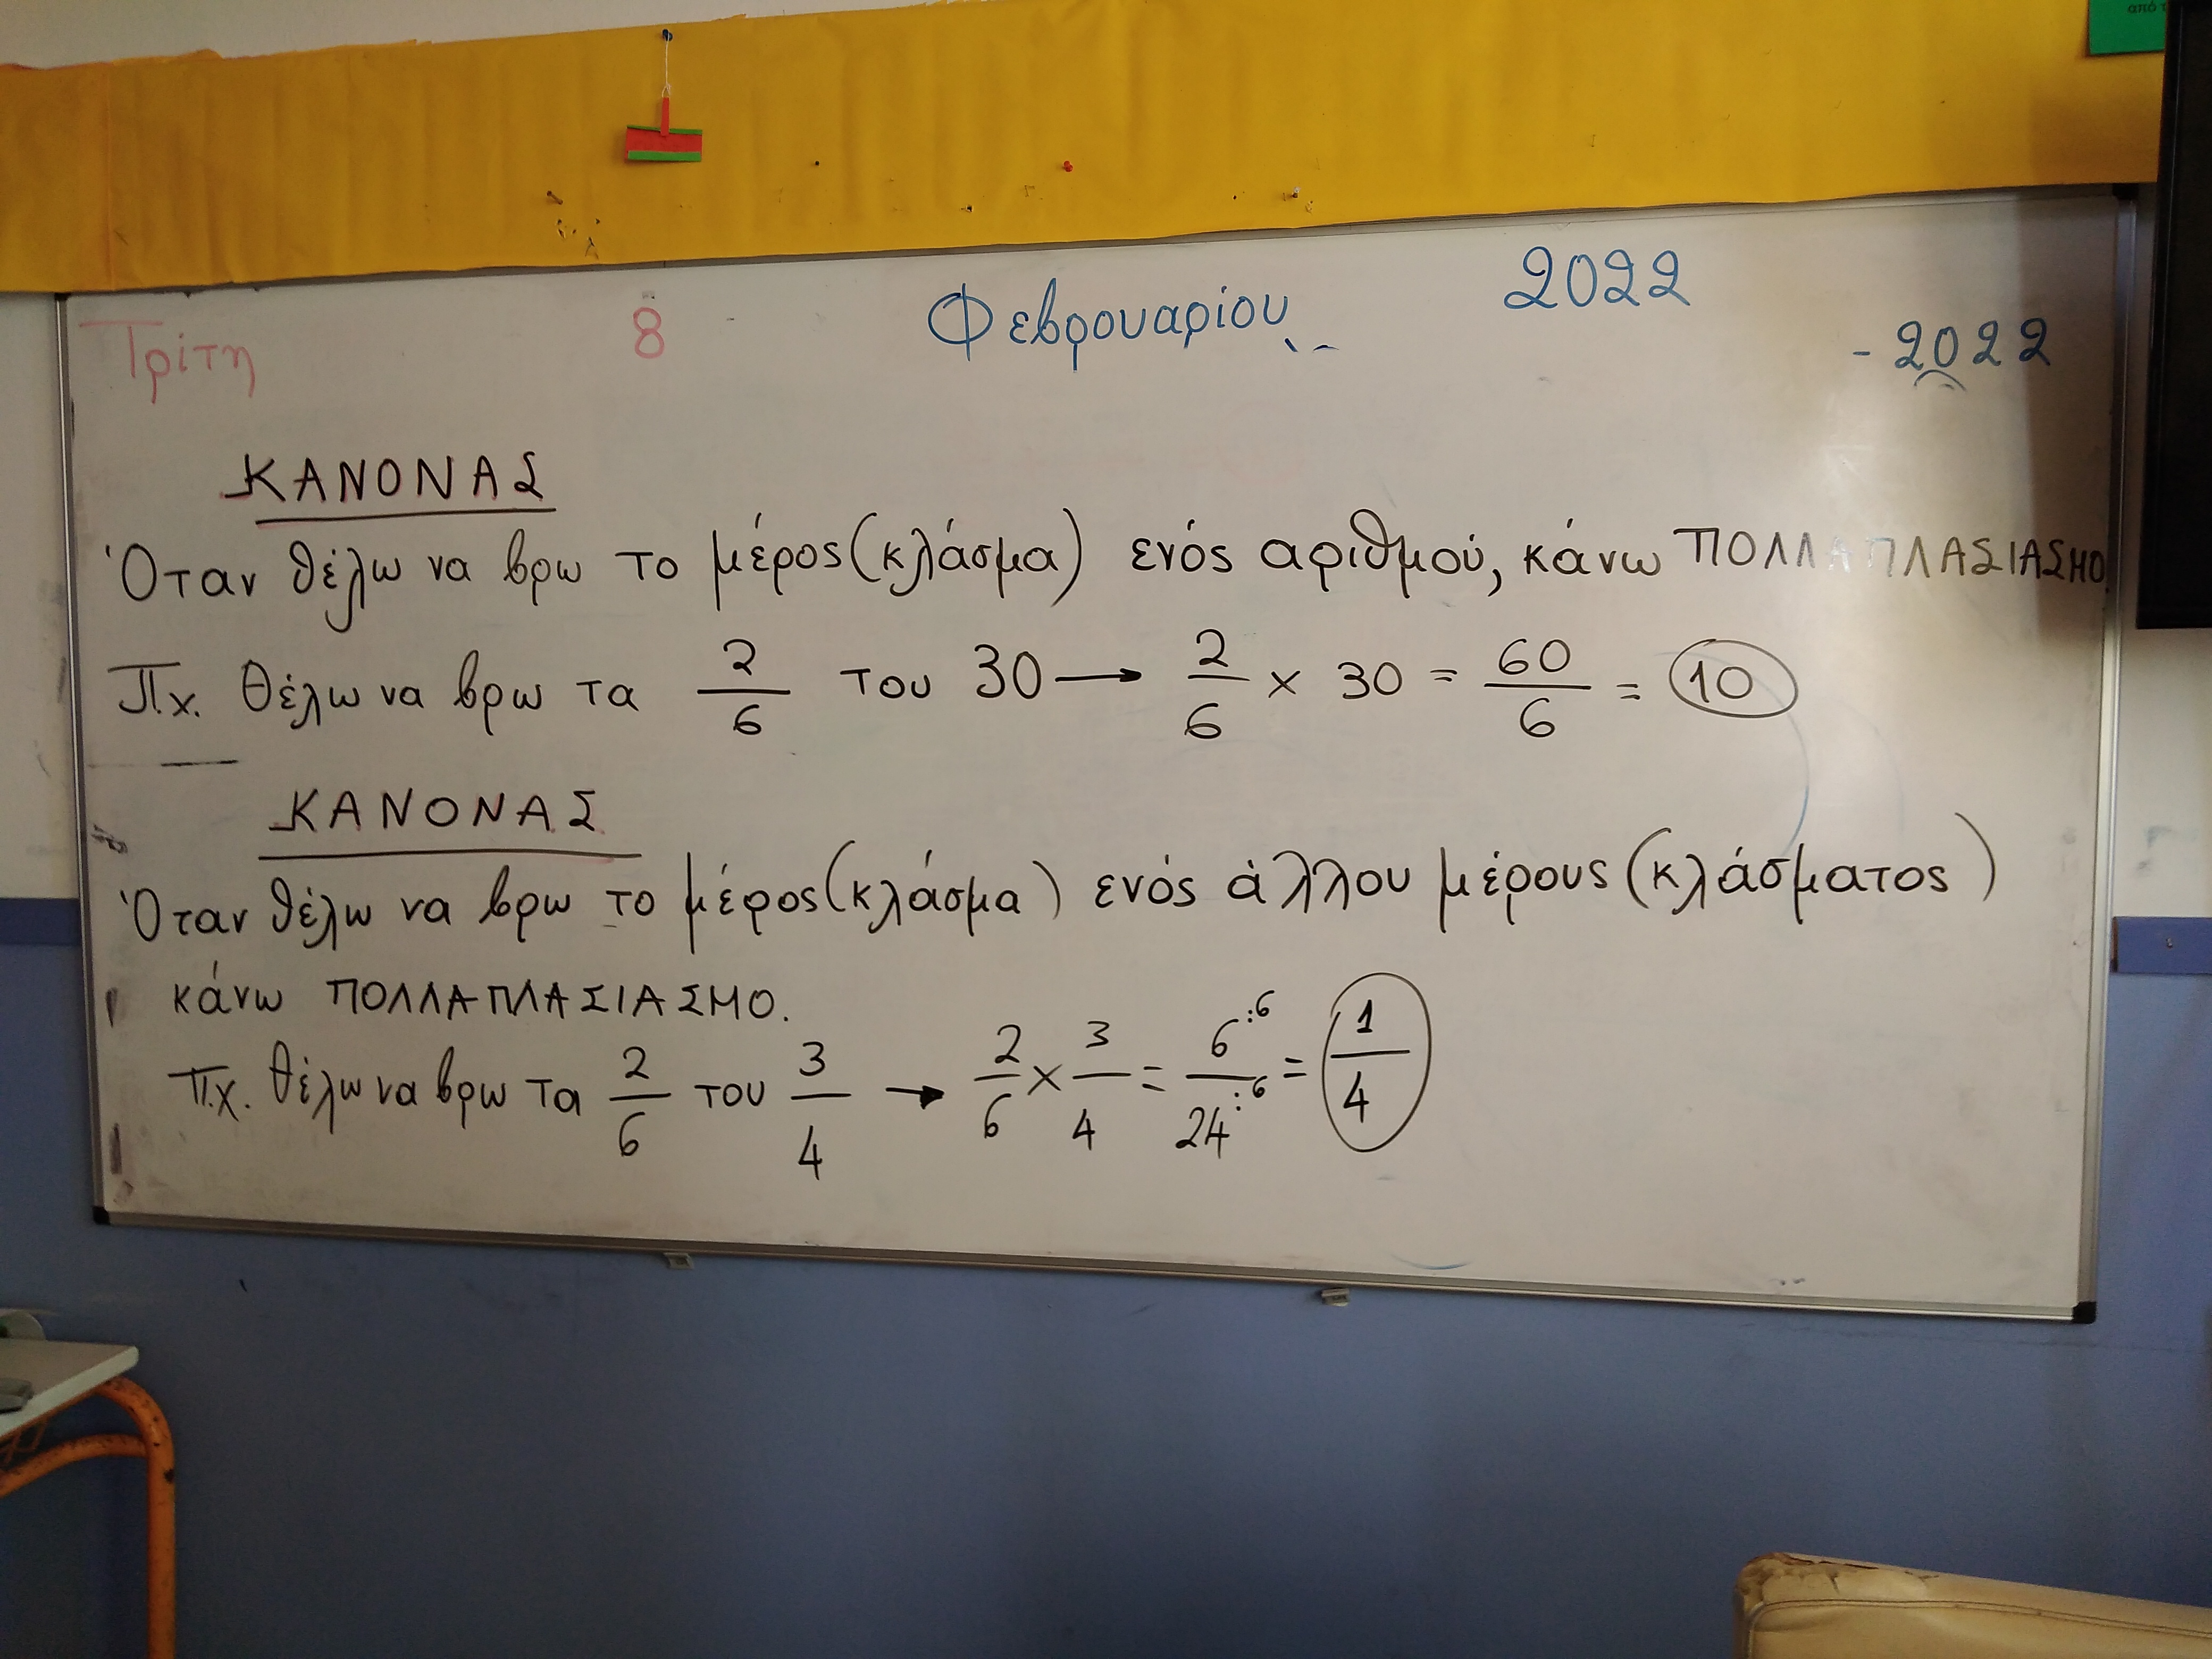 από τ
Τρίτη 8 Φεβρουαρίου 2022
- 2022
ΚΑΝΟΝΑΣ
Όταν θέλω να βρω το μέρος (κλάσμα) ενός αριθμού, κάνω ΠΟΛΛΑΠΛΑΣΙΑΣΜΟ
Π.χ. Θέλω να βρω τα 2/6 του 30 → 2/6 × 30 = 60/6 = 10
ΚΑΝΟΝΑΣ
Όταν θέλω να βρω το μέρος (κλάσμα) ενός άλλου μέρους (κλάσματος)
κάνω ΠΟΛΛΑΠΛΑΣΙΑΣΜΟ.
Π.χ. θέλω να βρω τα 2/6 του 3/4 → 2/6 × 3/4 = 6:6/24:6 = 1/4